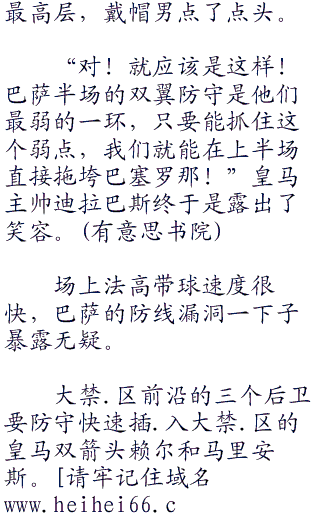 最高层，戴帽男点了点头。
“对！就应该是这样！
巴萨半场的双翼防守是他们
最弱的一环，只要能抓住这
个弱点，我们就能在上半场
直接拖垮巴塞罗那！”皇马
主帅迪拉巴斯终于是露出了
笑容。(有意思书院)
场上法高带球速度很
快，巴萨的防线漏洞一下子
暴露无疑。
大禁.区前沿的三个后卫
要防守快速插.入大禁.区的
皇马双箭头赖尔和马里安
斯。[请牢记住域名
www.heihei66.c